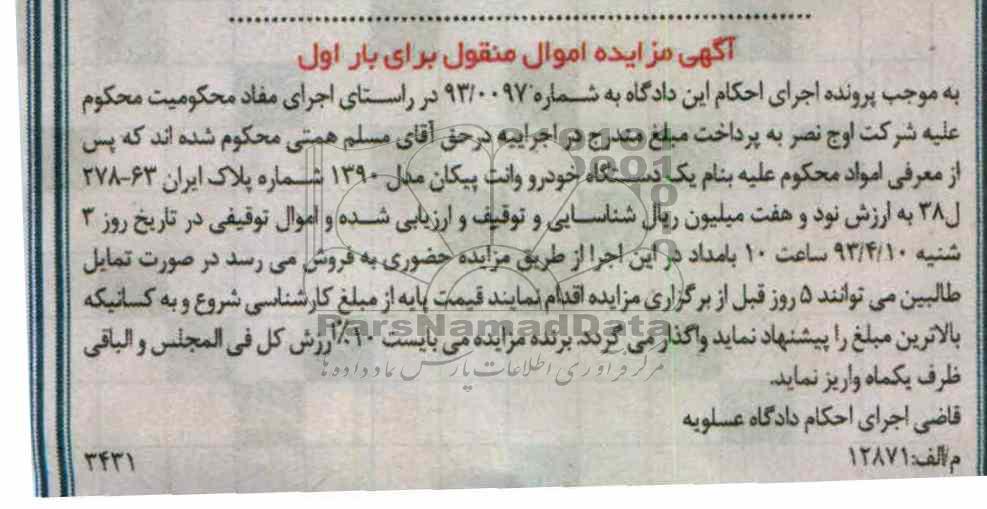 آگهی مزایده اموال منقول برای بار اول
به موجب پرونده اجرای احکام این دادگاه به شماره ۹۳/۰۰۹۷ در راستای اجرای مفاد محکومیت محکوم
علیه شرکت اوج نصر به پرداخت مبلغ مندرج در اجراییه درحق آقای مسلم همتی محکوم شده اند که پس
از معرفی امواد محکوم علیه بنام یک دستگاه خودرو وانت پیکان مدل ۱۳۹۰ شماره پلاک ایران ۶۳-۲۷۸
ل۳۸ به ارزش نود و هفت میلیون ریال شناسایی و توقیف و ارزیابی شده و اموال توقیفی در تاریخ روز ۳
شنبه ۹۳/۴/۱۰ ساعت ۱۰ بامداد در این اجرا از طریق مزایده حضوری به فروش می رسد در صورت تمایل
طالبین می توانند ۵ روز قبل از برگزاری مزایده اقدام نمایند قیمت پایه از مبلغ کارشناسی شروع و به کسانیکه
بالاترین مبلغ را پیشنهاد نماید واگذار می گردد. برنده مزایده می بایست ۱۰٪ ارزش کل فی المجلس و الباقی
ظرف یکماه واریز نماید.
قاضی اجرای احکام دادگاه عسلویه
م/الف:۱۲۸۷۱
۳۴۳۱
ParsNamadData
مرکز فرآوری اطلاعات پارس نماد داده ها